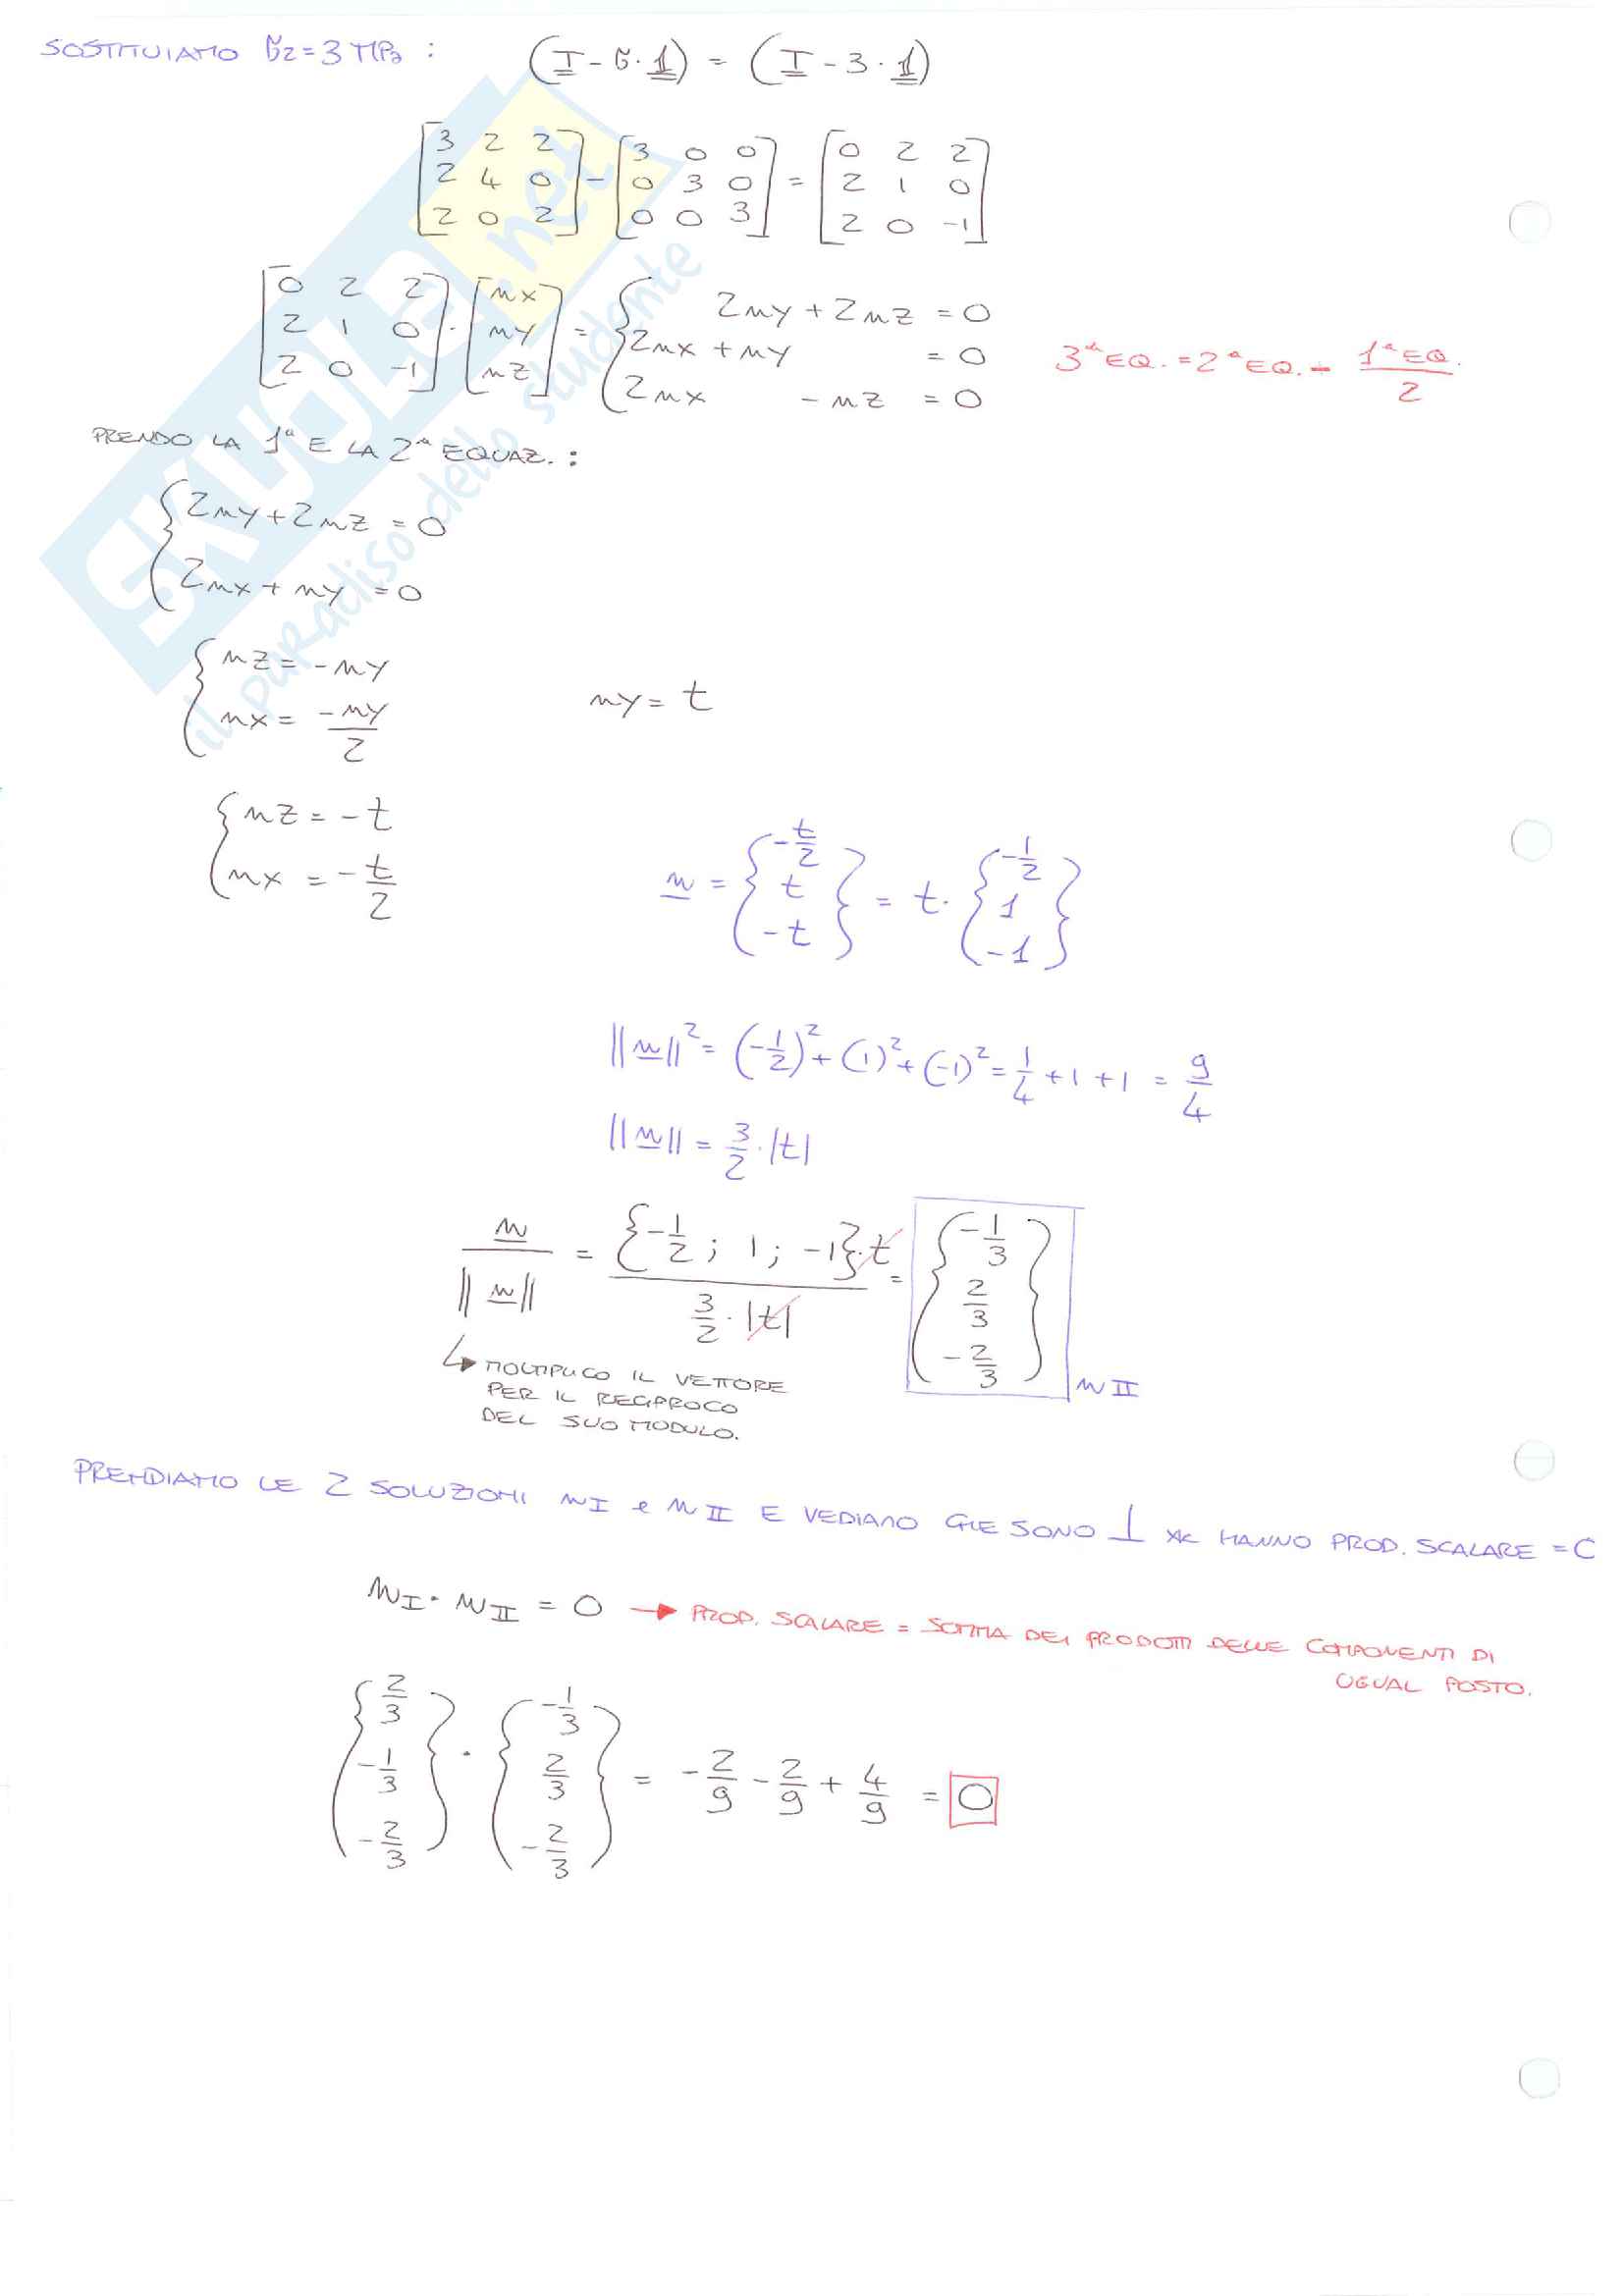 SOSTITUIAMO σ2 = 3 MPa : (T - σ · 1) = (T - 3 · 1)
[3 2 2] [3 0 0] [0 2 2]
[2 4 0] - [0 3 0] = [2 1 0]
[2 0 2] [0 0 3] [2 0 -1]
[0 2 2] [nx] { 2ny + 2nz = 0
[2 1 0] · [ny] = { 2nx + ny = 0
[2 0 -1] [nz] { 2nx - nz = 0
3ª EQ. = 2ª EQ. - 1ª EQ. / 2
PRENDO LA 1ª E LA 2ª EQUAZ. :
{ 2ny + 2nz = 0
{ 2nx + ny = 0
{ nz = - ny
{ nx = -ny/2
ny = t
{ nz = - t
{ nx = - t/2
n = { -t/2 t -t } = t · { -1/2 1 -1 }
||n||² = (-1/2)² + (1)² + (-1)² = 1/4 + 1 + 1 = 9/4
||n|| = 3/2 · |t|
n / ||n|| = {-1/2 ; 1 ; -1} · t / 3/2 · |t| = { -1/3 2/3 -2/3 } n II
↳ MOLTIPLICO IL VETTORE
PER IL RECIPROCO
DEL SUO MODULO.
PRENDIAMO LE 2 SOLUZIONI nI e nII E VEDIAMO CHE SONO ⊥ xk HANNO PROD. SCALARE = 0
nI · nII = 0 → PROD. SCALARE = SOMMA DEI PRODOTTI DELLE COMPONENTI DI
UGUAL POSTO.
{ 2/3 -1/3 -2/3 } · { -1/3 2/3 -2/3 } = -2/9 - 2/9 + 4/9 = 0
SKUOLA.net
il paradiso dello studente